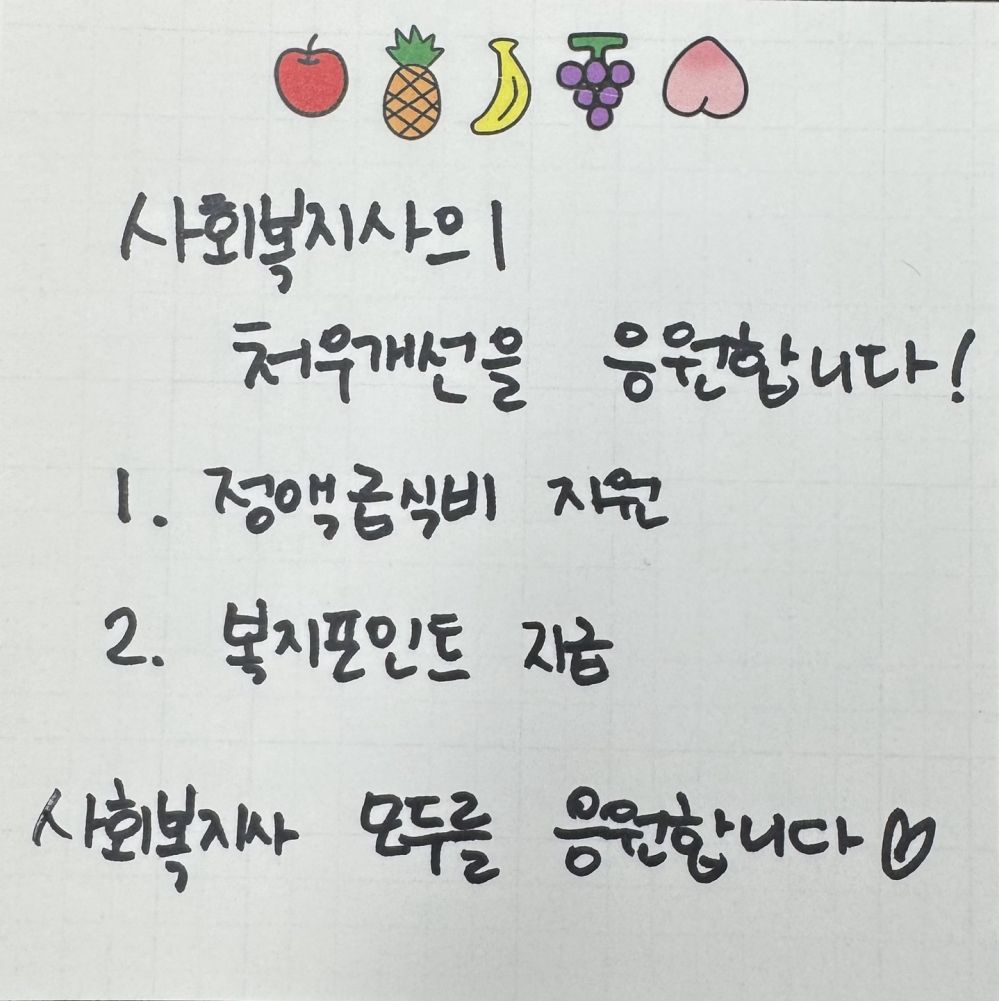 사회복지사의
처우개선을 응원합니다!
1. 정액급식비 지원
2. 복지포인트 지급
사회복지사 모두를 응원합니다♡